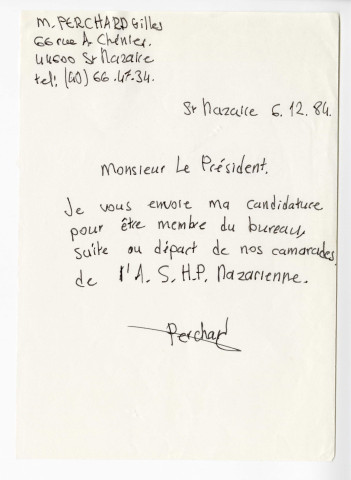 M. PERCHARD Gilles
66 rue A Chénier.
44600 St Nazaire
tel: (40) 66.47.34.
St Nazaire 6.12.84.
Monsieur Le Président.
Je vous envoie ma candidature
pour être membre du bureau,
suite au départ de nos camarades
de l'A.S.H.P. Nazairienne.
Perchard